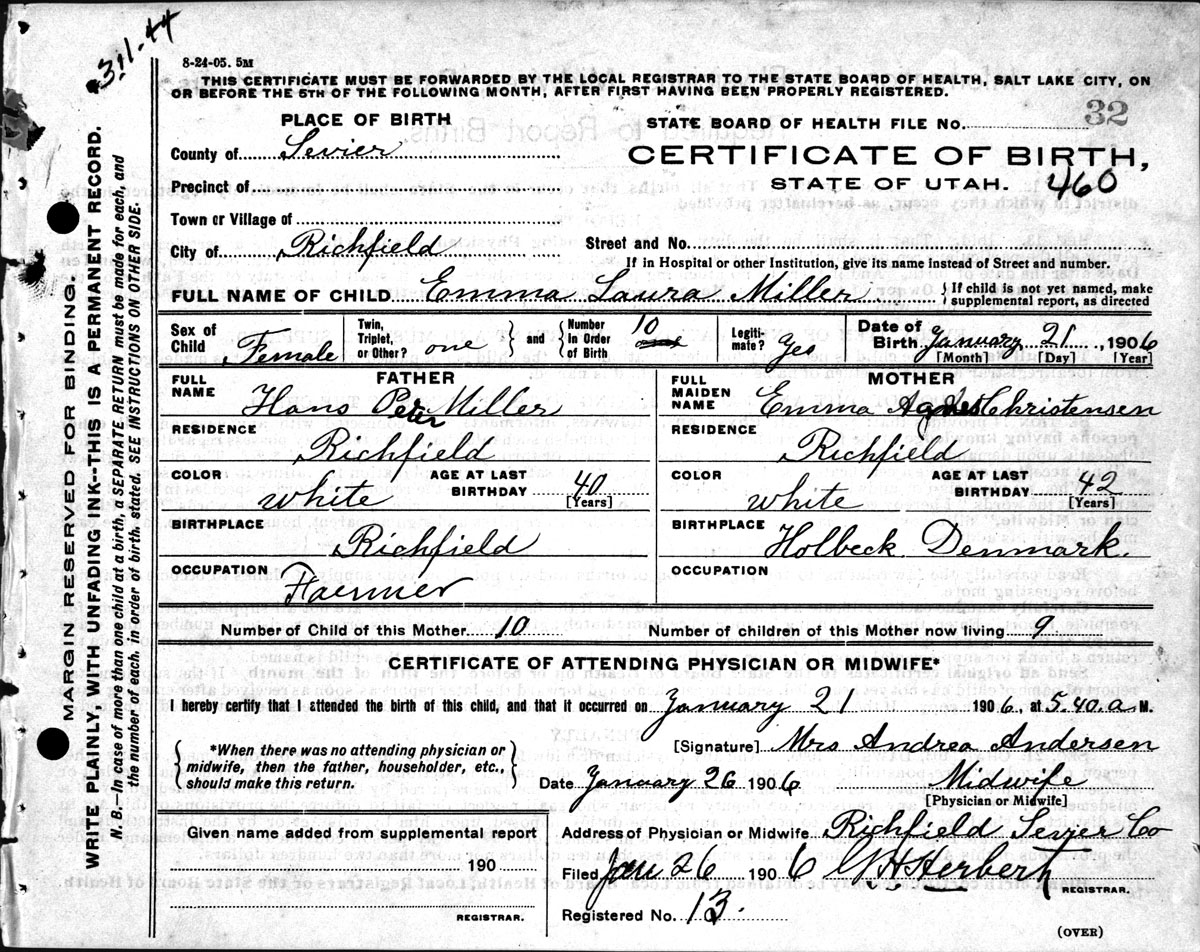 3-11-44
8-24-05. 5M
THIS CERTIFICATE MUST BE FORWARDED BY THE LOCAL REGISTRAR TO THE STATE BOARD OF HEALTH, SALT LAKE CITY, ON
OR BEFORE THE 5TH OF THE FOLLOWING MONTH, AFTER FIRST HAVING BEEN PROPERLY REGISTERED.
PLACE OF BIRTH
STATE BOARD OF HEALTH FILE No. 32
County of Sevier
CERTIFICATE OF BIRTH,
Precinct of
STATE OF UTAH. 460
Town or Village of
City of Richfield
Street and No.
If in Hospital or other Institution, give its name instead of Street and number.
FULL NAME OF CHILD Emma Laura Miller { If child is not yet named, make supplemental report, as directed
Sex of Child Female
Twin, Triplet, or Other? one } and { Number in Order of Birth 10
Legitimate? Yes
Date of Birth January 21, 1906
[Month] [Day] [Year]
FATHER
FULL NAME Hans Peter Miller
RESIDENCE Richfield
COLOR White
AGE AT LAST BIRTHDAY 40
[Years]
BIRTHPLACE Richfield
OCCUPATION Faermer
MOTHER
FULL MAIDEN NAME Emma Agnes Christensen
RESIDENCE Richfield
COLOR White
AGE AT LAST BIRTHDAY 42
[Years]
BIRTHPLACE Holbeck Denmark.
OCCUPATION
Number of Child of this Mother 10
Number of children of this Mother now living 9
CERTIFICATE OF ATTENDING PHYSICIAN OR MIDWIFE*
I hereby certify that I attended the birth of this child, and that it occurred on January 21 1906, at 5.40.a M.
{ *When there was no attending physician or
midwife, then the father, householder, etc.,
should make this return. }
[Signature] Mrs Andrea Andersen
Date January 26 1906 Midwife
[Physician or Midwife]
Given name added from supplemental report
190
REGISTRAR.
Address of Physician or Midwife Richfield Sevier Co
Filed Jan 26 1906 G H Herbert
REGISTRAR.
Registered No. 13.
(OVER)
MARGIN RESERVED FOR BINDING.
WRITE PLAINLY, WITH UNFADING INK--THIS IS A PERMANENT RECORD.
N. B.—In case of more than one child at a birth, a SEPARATE RETURN must be made for each, and
the number of each, in order of birth, stated. SEE INSTRUCTIONS ON OTHER SIDE.